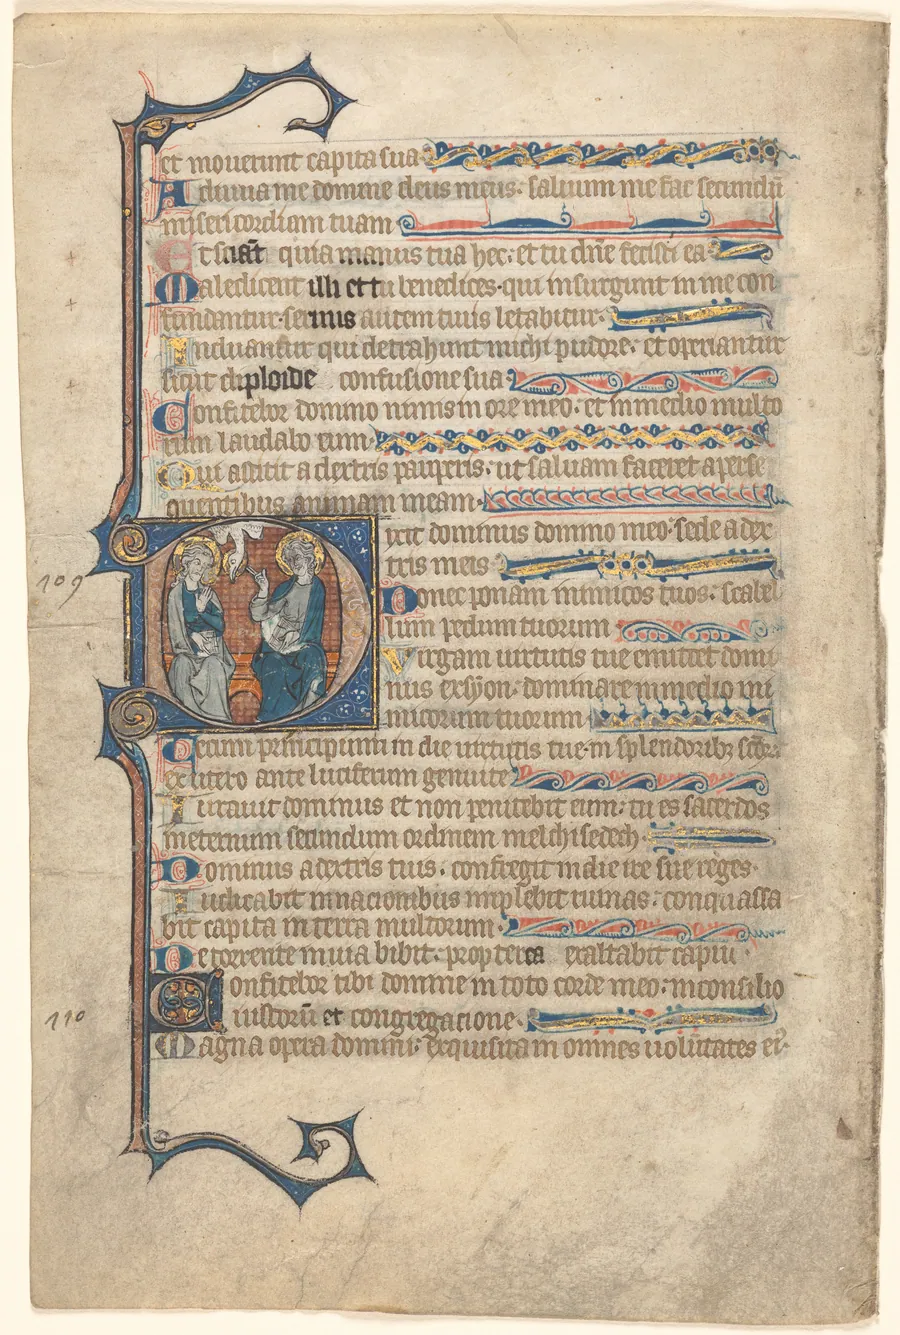 et mouerunt capita sua
Adiuua me domine deus meus: saluum me fac secundū
misericordiam tuam
Et sciāt quia manus tua hec: et tu dn̄e fecisti ea
Maledicent illi et tu benedices. qui insurgunt in me con
fundantur. seruus autem tuus letabitur.
Induantur qui detrahunt michi pudore. et operiantur
sicut diploide confusione sua
Confitebor domino nimis in ore meo. et in medio multo
rum laudabo eum.
Qui astitit a dextris pauperis. ut saluam faceret a perse
quentibus animam meam.
Dixit dominus domino meo. sede a dex
tris meis
109
Donec ponam inimicos tuos. scabel
lum pedum tuorum
Virgam uirtutis tue emittet domi
nus ex syon. dominare in medio ini
micorum tuorum
Tecum principium in die uirtutis tue. in splendoribȝ
ex utero ante luciferum genui te
Iurauit dominus et non penitebit eum: tu es sacerdos
in eternum secundum ordinem melchisedech.
Dominus a dextris tuis. confregit in die ire sue reges.
Iudicabit in nacionibus implebit ruinas: conquassa
bit capita in terra multorum.
De torrente in uia bibit. propterea exaltabit capu
Confitebor tibi domine in toto corde meo: in consilio
110
iustorū et congregacione.
Magna opera domini: exquisita in omnes uolūtates ei᷒